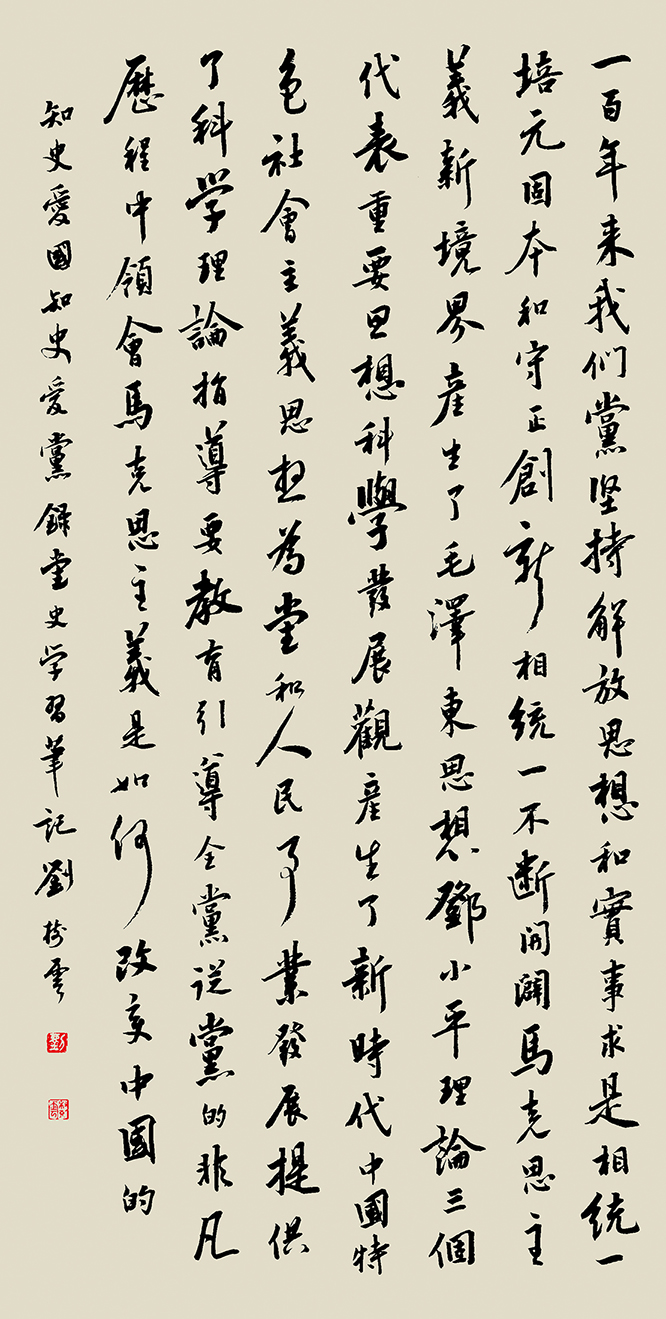 一百年来我们黨坚持解放思想和實事求是相統一
培元固本和守正創新相統一不断開闢馬克思主
義新境界產生了毛澤東思想鄧小平理論三個
代表重要思想科學發展觀產生了新時代中國特
色社會主義思想為党和人民事業發展提供
了科学理論指導要教育引導全黨從黨的非凡
歷程中領會馬克思主義是如何改变中國的
知史愛國知史爱黨錄党史学習筆記劉樹雲